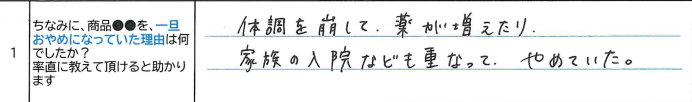 1
ちなみに、商品●●を、一旦
おやめになっていた理由は何
でしたか？
率直に教えて頂けると助かり
ます
体調を崩して、薬が増えたり、
家族の入院なども重なって、やめていた。